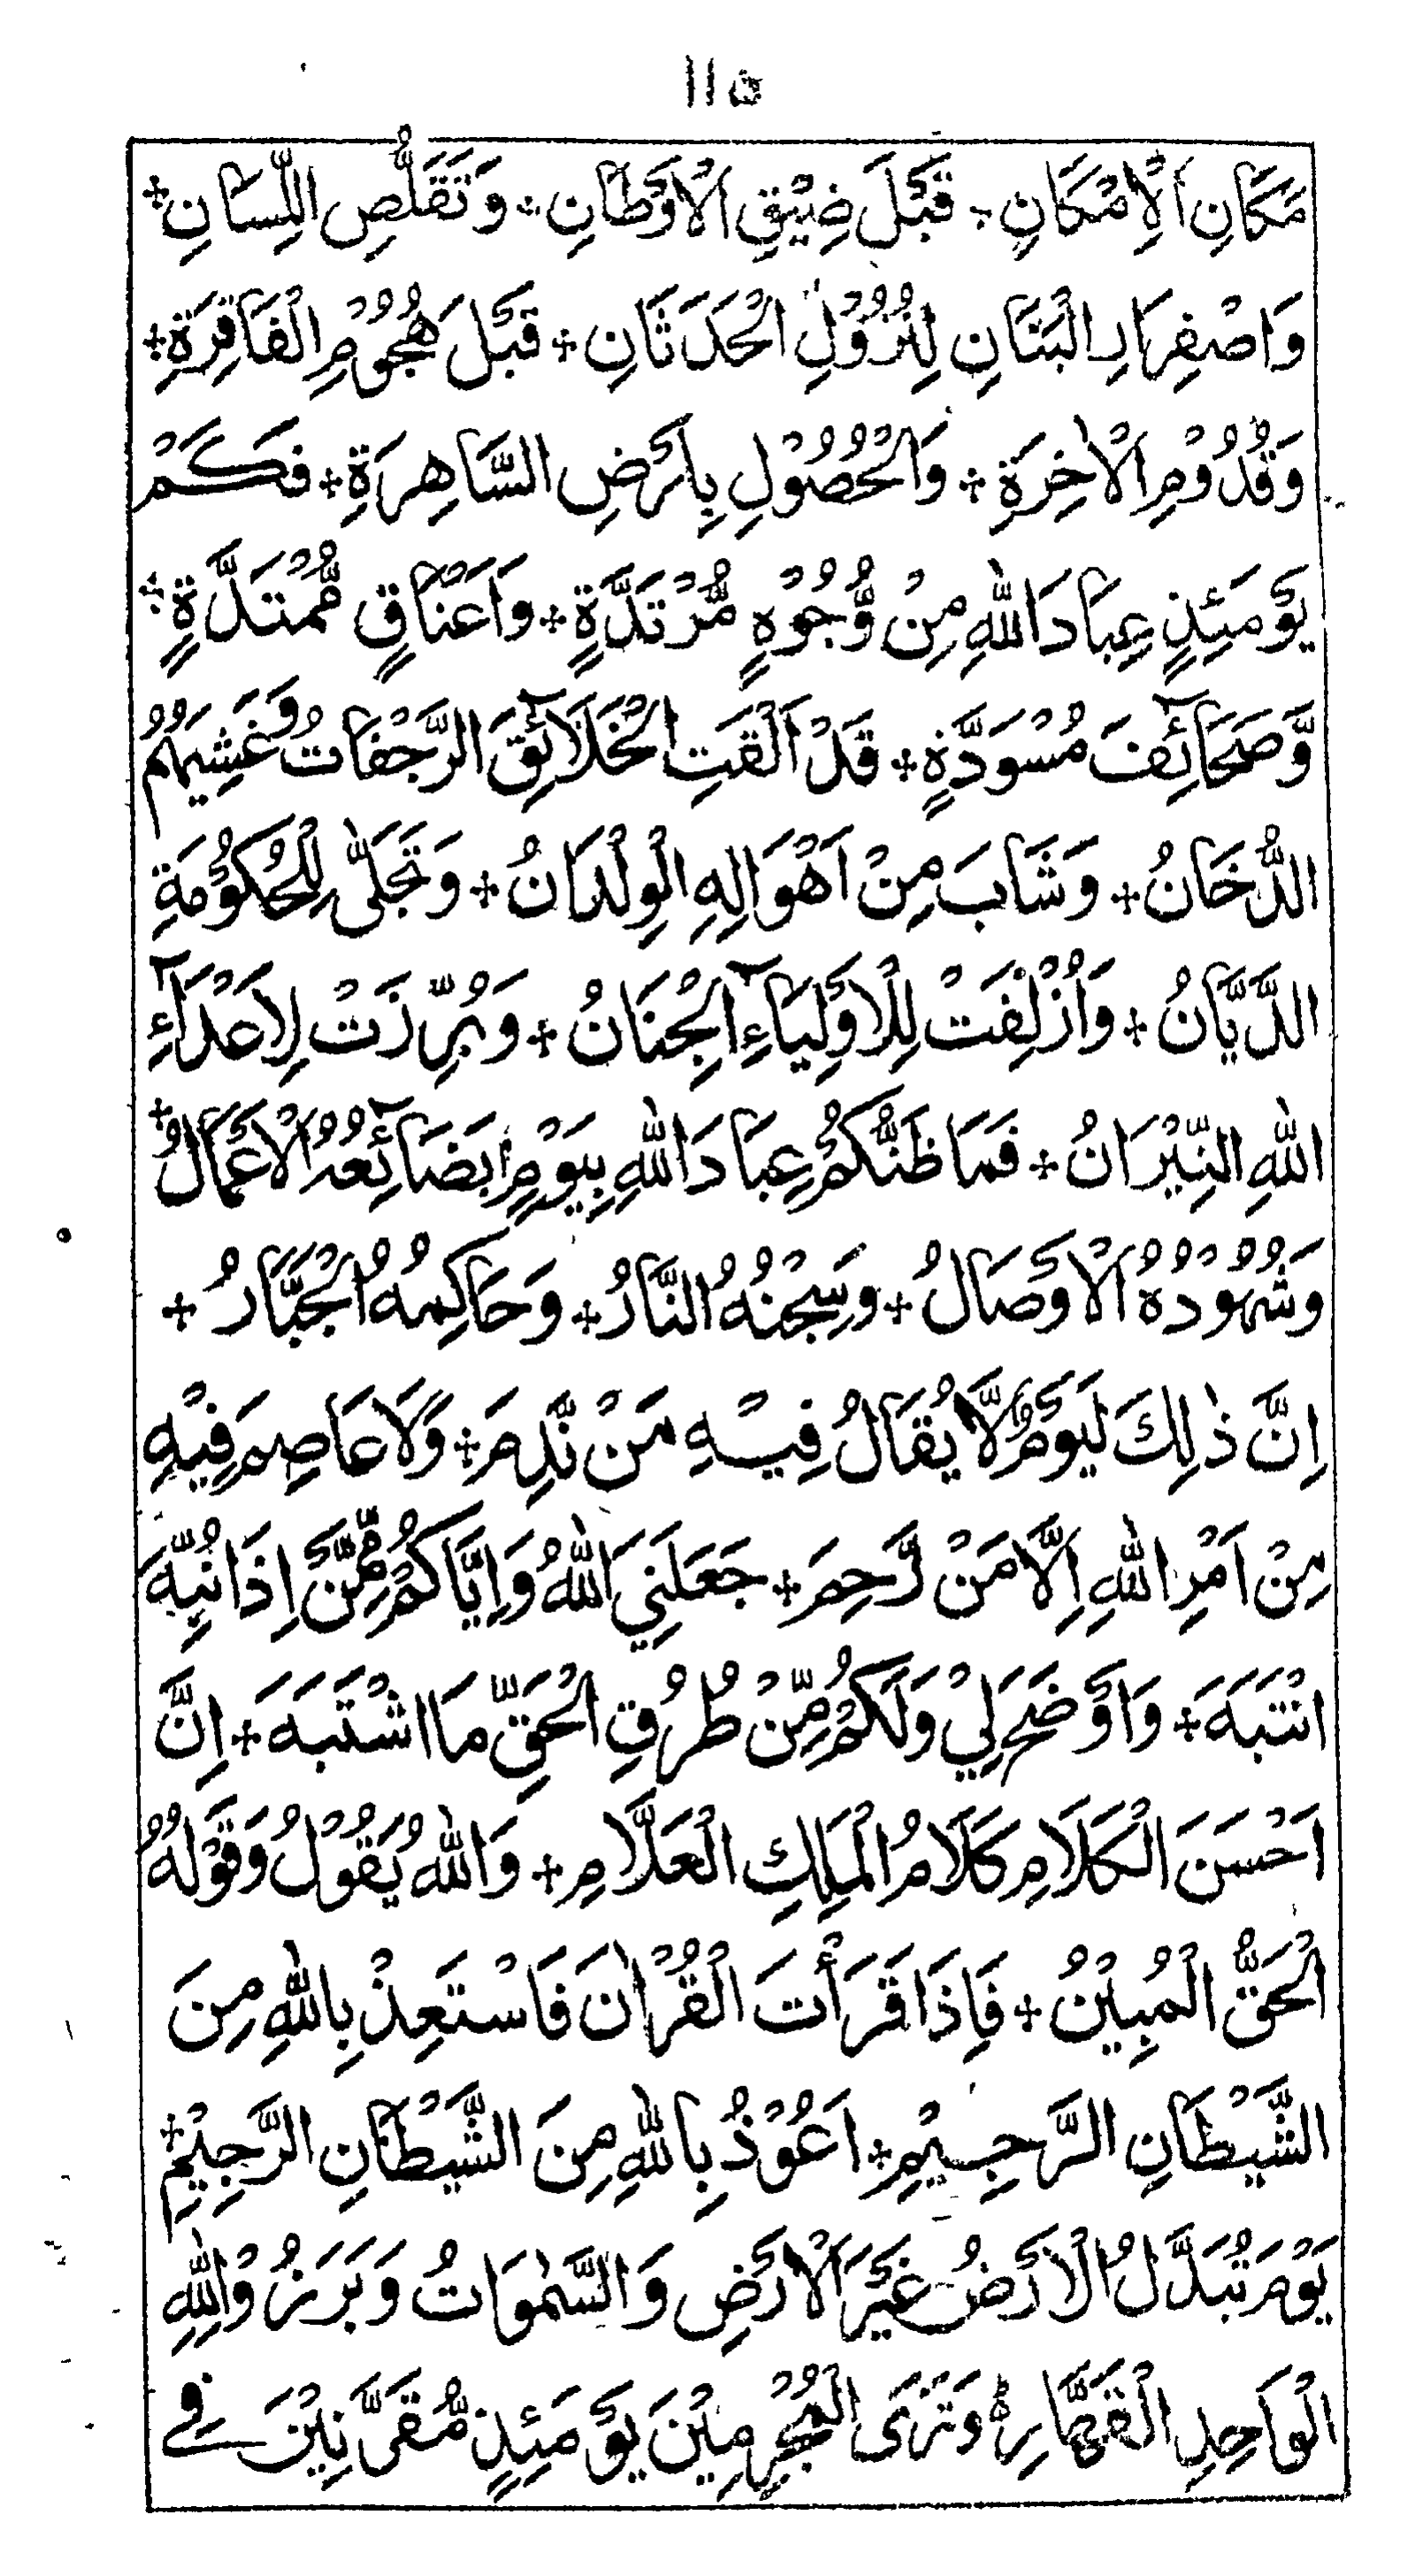 ١١٥
مَكَانِ الْاِمْكَانِ ÷ قَبْلَ ضِيْقِ الْاَوْطَانِ ÷ وَتَقَلُّصِ اللِّسَانِ ÷
وَاصْفِرَارِ الْبَنَانِ لِنُزُوْلِ الْحَدَثَانِ ÷ قَبْلَ هُجُوْمِ الْفَاقِرَةِ ÷
وَقُدُوْمِ الْاٰخِرَةِ ÷ وَالْحُصُوْلِ بِاَرْضِ السَّاهِرَةِ ÷ فَكَمْ
يَوْمَئِذٍ عِبَادَ اللّٰهِ مِنْ وُّجُوْهٍ مُّرْتَدَّةٍ ÷ وَاَعْنَاقٍ مُّمْتَدَّةٍ ÷
وَّصَحَآئِفَ مُسْوَدَّةٍ ÷ قَدْ اَلْقَتِ الْخَلَآئِقَ الرَّجْفَاتُ وَغَشِيَهُمُ
الدُّخَانُ ÷ وَشَابَ مِنْ اَهْوَالِهِ الْوِلْدَانُ ÷ وَتَجَلّٰى لِلْحُكُوْمَةِ
الدَّيَّانُ ÷ وَاُزْلِفَتْ لِلْاَوْلِيَآءِ الْجِنَانُ ÷ وَبُرِّزَتْ لِاَعْدَآءِ
اللّٰهِ النِّيْرَانُ ÷ فَمَا ظَنُّكُمْ عِبَادَ اللّٰهِ بِيَوْمٍ بَضَآئِعُهُ الْاَعْمَالُ ÷
وَشُهُوْدُهُ الْاَوْصَالُ ÷ وَسِجْنُهُ النَّارُ ÷ وَحَاكِمُهُ الْجَبَّارُ ÷
اِنَّ ذٰلِكَ لَيَوْمٌ لَّا يُقَالُ فِيْهِ مَنْ نَّدِمَ ÷ وَلَا عَاصِمَ فِيْهِ
مِنْ اَمْرِ اللّٰهِ اِلَّا مَنْ رَّحِمَ ÷ جَعَلَنِيَ اللّٰهُ وَاِيَّاكُمْ مِّمَّنْ اِذَا نُبِّهَ
انْتَبَهَ ÷ وَاَوْضَحَ لِيْ وَلَكُمْ مِّنْ طُرُقِ الْحَقِّ مَا اشْتَبَهَ ÷ اِنَّ
اَحْسَنَ الْكَلَامِ كَلَامُ الْمَلِكِ الْعَلَّامِ ÷ وَاللّٰهُ يَقُوْلُ وَقَوْلُهُ
الْحَقُّ الْمُبِيْنُ ÷ فَاِذَا قَرَأْتَ الْقُرْاٰنَ فَاسْتَعِذْ بِاللّٰهِ مِنَ
الشَّيْطَانِ الرَّجِيْمِ ÷ اَعُوْذُ بِاللّٰهِ مِنَ الشَّيْطَانِ الرَّجِيْمِ ÷
يَوْمَ تُبَدَّلُ الْاَرْضُ غَيْرَ الْاَرْضِ وَالسَّمٰوَاتُ وَبَرَزُوْا لِلّٰهِ
الْوَاحِدِ الْقَهَّارِ ۝ وَتَرَى الْمُجْرِمِيْنَ يَوْمَئِذٍ مُّقَرَّنِيْنَ فِي